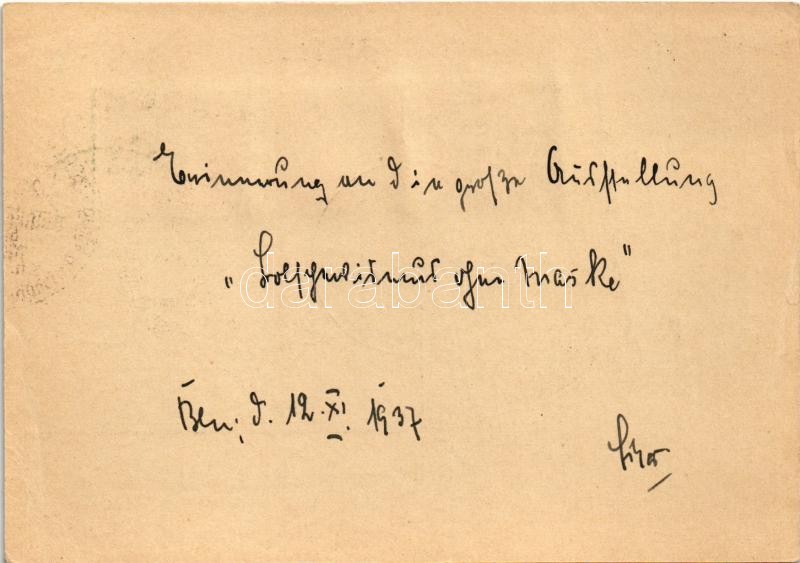 Erinnerung an die große Ausstellung
„Bolschewismus ohne Maske"
darabanth
Bln; d. 12. XI. 1937